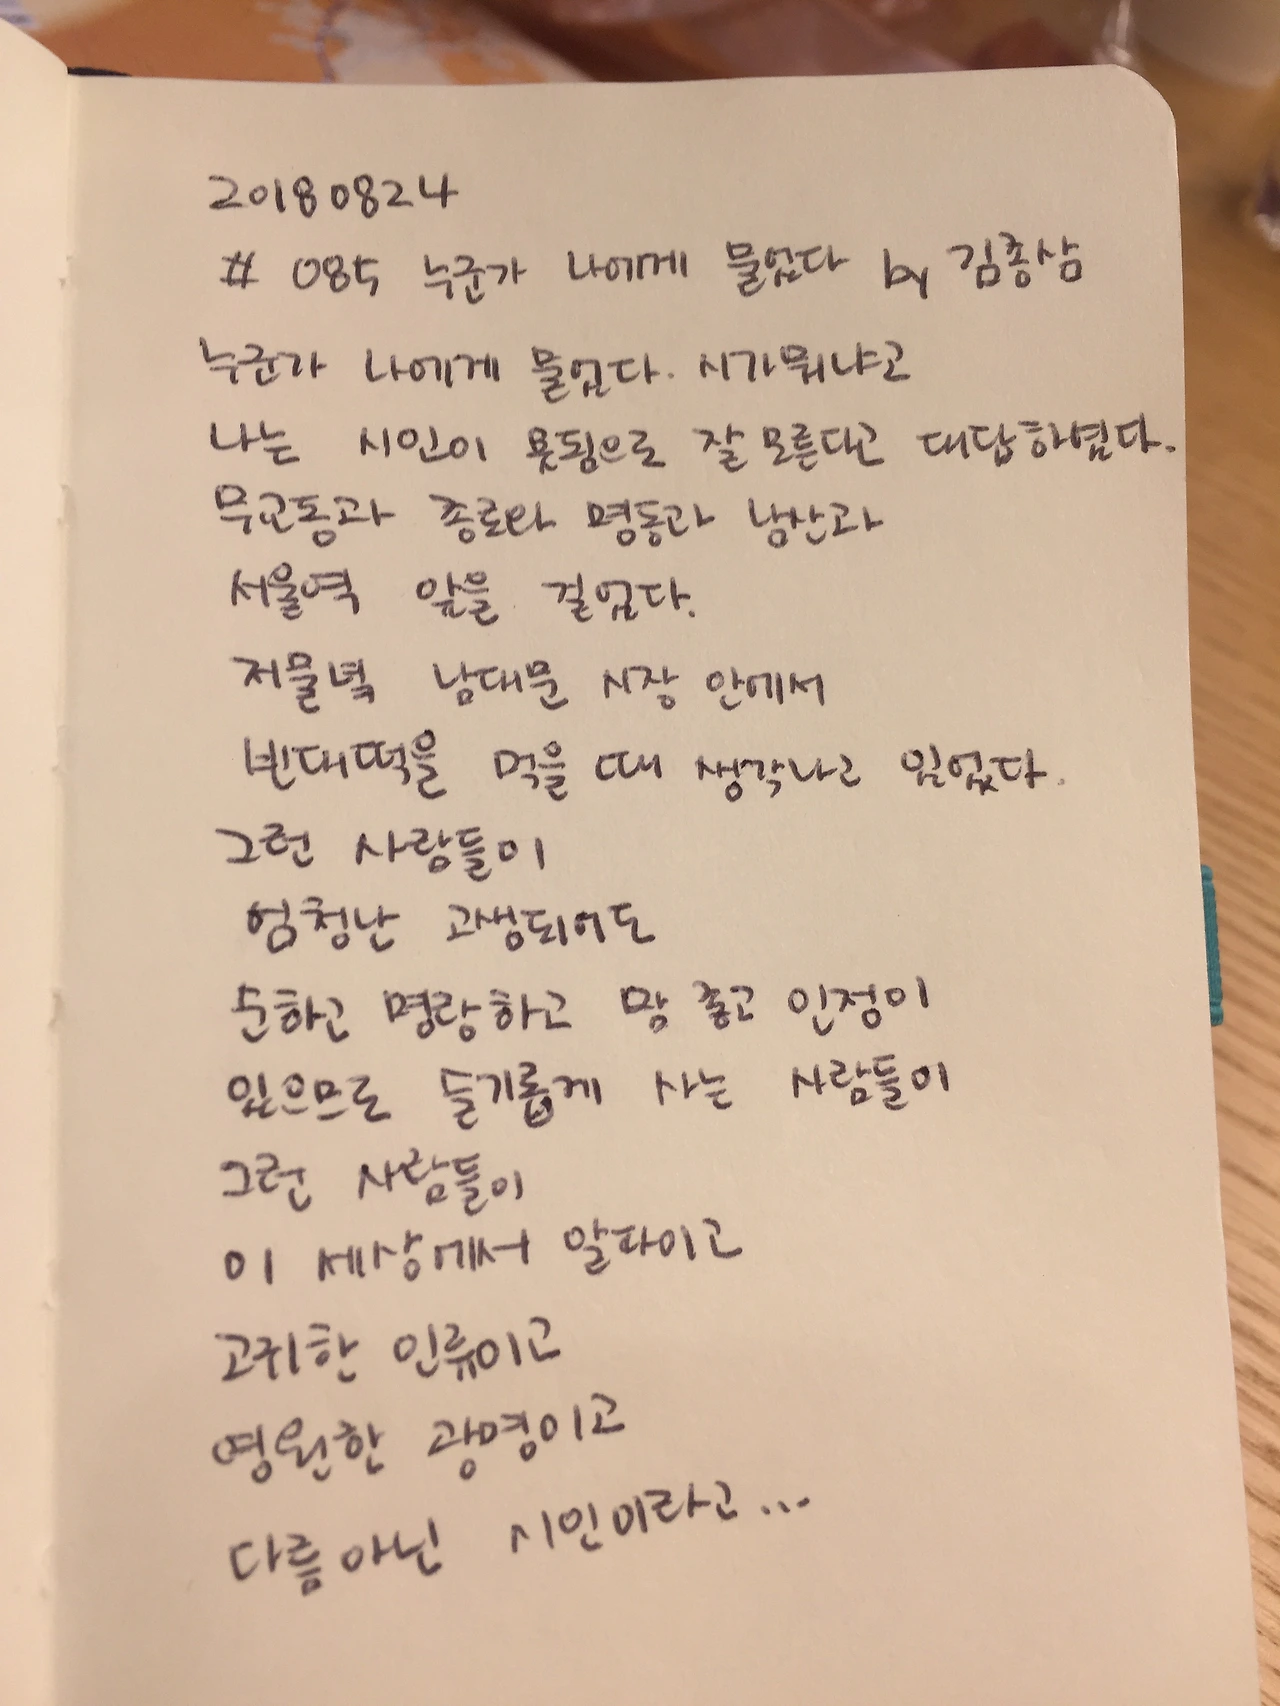 20180824
# 085 누군가 나에게 물었다 by 김종삼
누군가 나에게 물었다. 시가뭐냐고
나는 시인이 못됨으로 잘 모른다고 대답하였다.
무교동과 종로와 명동과 남산과
서울역 앞을 걸었다.
저물녘 남대문 시장 안에서
빈대떡을 먹을 때 생각나고 있었다.
그런 사람들이
엄청난 고생되어도
순하고 명랑하고 맘 좋고 인정이
있으므로 슬기롭게 사는 사람들이
그런 사람들이
이 세상에서 알파이고
고귀한 인류이고
영원한 광명이고
다름아닌 시인이라고...